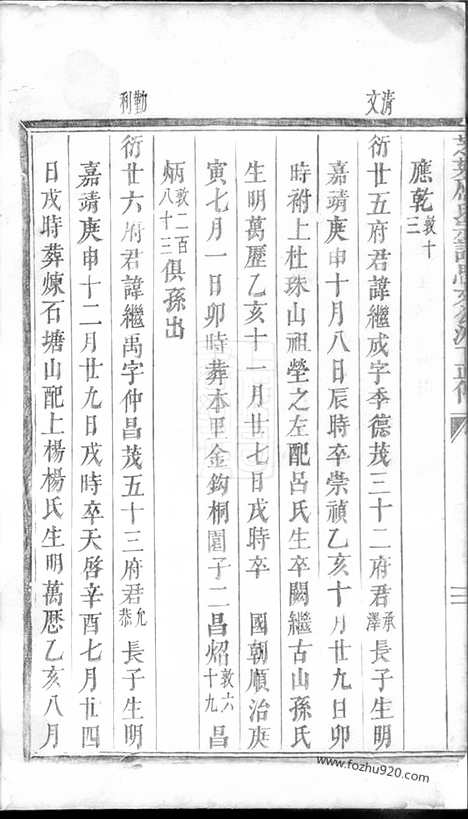 清文
勤利
應乾敦十三
衍廿五府君諱繼成字季德茂三十二府君承澤長子生明
嘉靖庚申十月八日辰時卒崇禎乙亥十月廿九日卯
時祔上杜珠山祖塋之左配呂氏生卒闕繼古山孫氏
生明萬歷乙亥十一月廿七日戌時卒 國朝順治庚
寅七月一日卯時葬本里金鈎桐園子二昌炤敦六十九昌
炳敦二百八十三俱孫出
衍廿六府君諱繼禹字仲昌茂五十三府君允恭長子生明
嘉靖庚申十二月廿九日戌時卒天啓辛酉七月廿四
日戌時葬煉石塘山配上楊楊氏生明萬歷乙亥八月
www.fozhu920.com